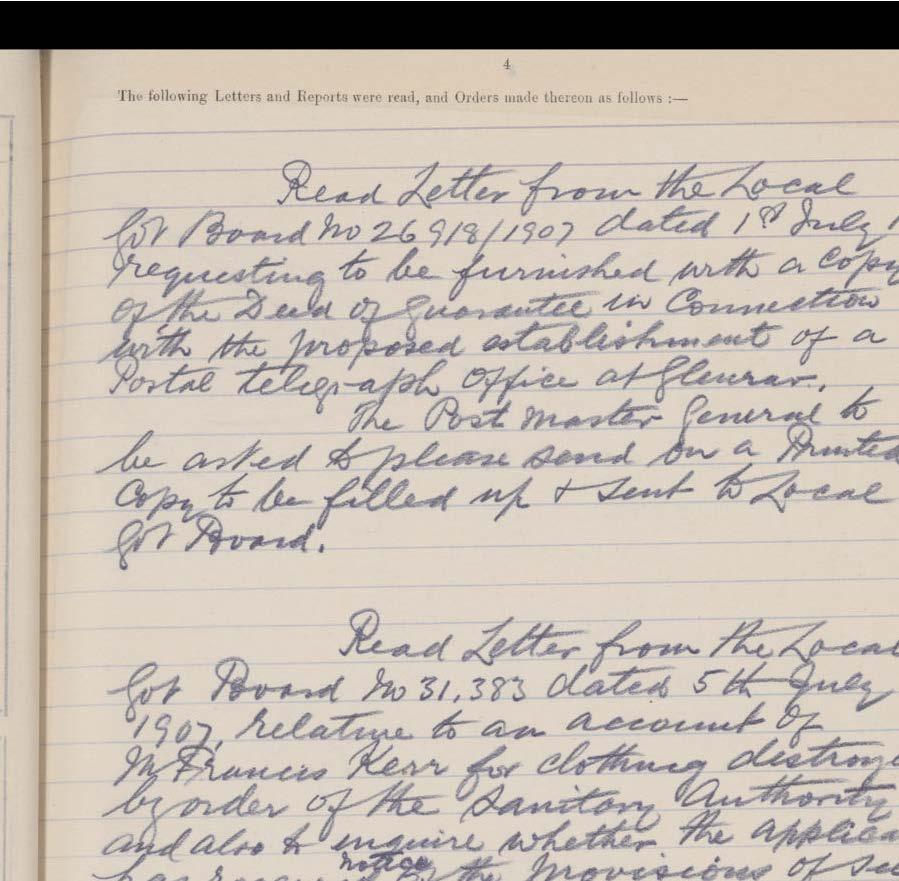 4
The following Letters and Reports were read, and Orders made thereon as follows :—
Read Letter from the Local
Gov Board No 26918/1907 dated 1st July
requesting to be furnished with a Copy
of the Deed of Guarantee in Connection
with the proposed establishment of a
Postal telegraph Office at
The Post Master General to
be asked to please send on a Printed
Copy to be filled up & sent to Local
Gov Board.
Read Letter from the Local
Gov Board No 31,383 dated 5th July
1907, relative to an account of
Mr Francis Kerr for clothing destroye
by order of the Sanitary Authority
and also to enquire whether the applican
notice
the provisions of